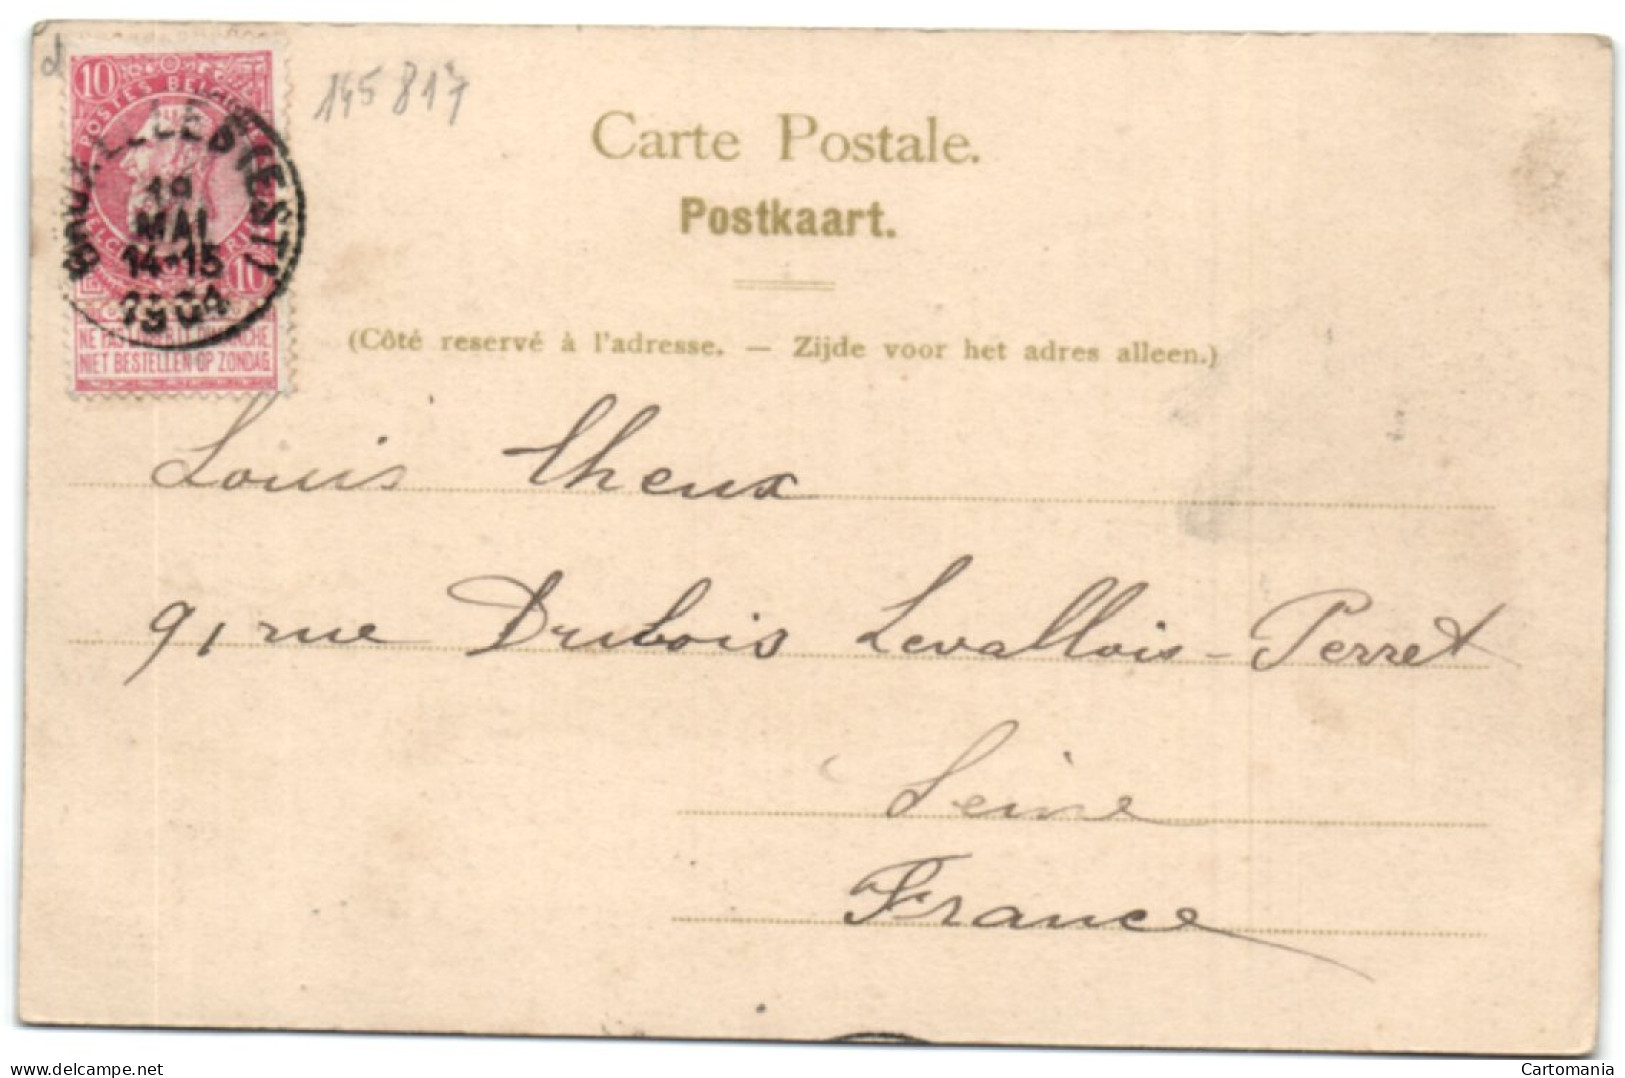 d
145 817
10
POSTES BELGIQUE
BRUXELLES (EST)
19
MAI
14-15
1904
10
NE PAS LIVRER LE DIMANCHE
NIET BESTELLEN OP ZONDAG
Carte Postale.
Postkaart.
(Côté reservé à l'adresse. — Zijde voor het adres alleen.)
Louis Theux
91 rue Dubois Levallois-Perret
Seine
France
delcampe.net
Cartomania